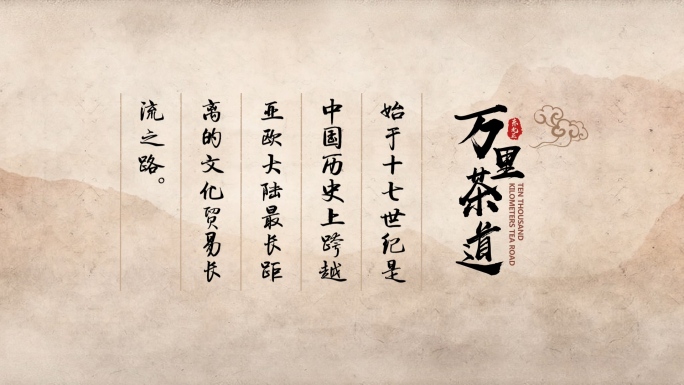 万里茶道
TEN THOUSAND
KILOMETERS TEA ROAD
始于十七世纪是
中国历史上跨越
亚欧大陆最长距
离的文化贸易长
流之路。